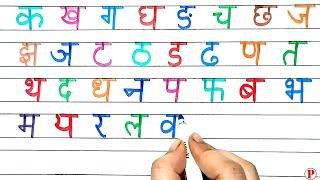 क ख ग घ ङ च छ ज
झ ञ ट ठ ड ढ ण त
थ द ध न प फ ब भ
म य र ल व
P